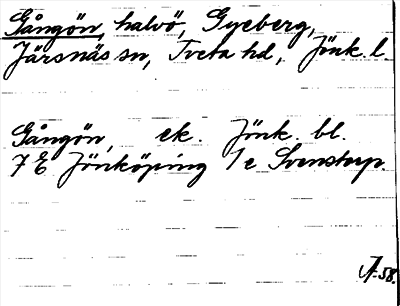 Gångön, halvö, Gyeberg,
Järsnäs sn, Tveta hd, Jönk. l.
Gångön, ek. Jönk. bl.
7 E Jönköping 1 e Svenstorp.
-58.